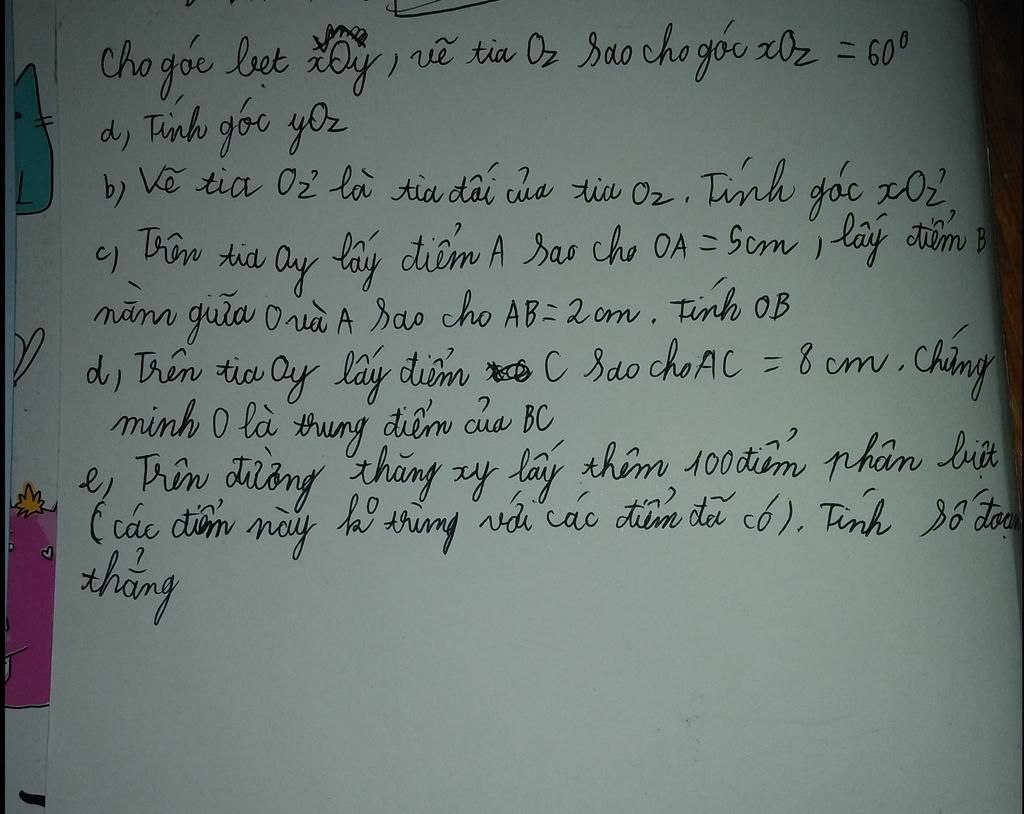 Cho góc bẹt xOy, vẽ tia Oz sao cho góc xOz = 60⁰
a, Tính góc yOz
b) Vẽ tia Oz' là tia đối của tia Oz. Tính góc xOz'
c) Trên tia Oy lấy điểm A sao cho OA = 5cm, lấy điểm B
nằm giữa O và A sao cho AB = 2 cm. Tính OB
d, Trên tia Oy lấy điểm C sao cho AC = 8 cm. Chứng
minh O là trung điểm của BC
e, Trên đường thẳng xy lấy thêm 100 điểm phân biệt
(các điểm này k⁰ trùng với các điểm đã có). Tính số đoạn
thẳng